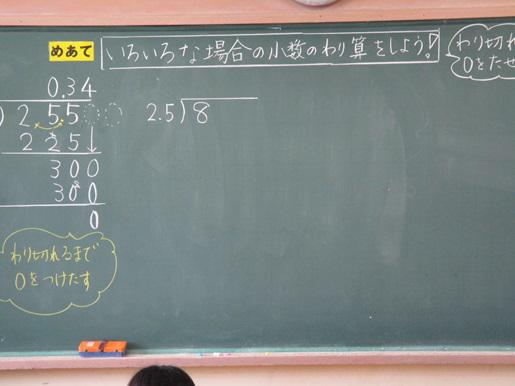 めあて
いろいろな場合の小数のわり算をしよう!
わり切れ
0をたせ
0.34
2 5.5
2 2 5
3 0 0
3 0 0
0
2.5)8
わり切れるまで
0をつけたす